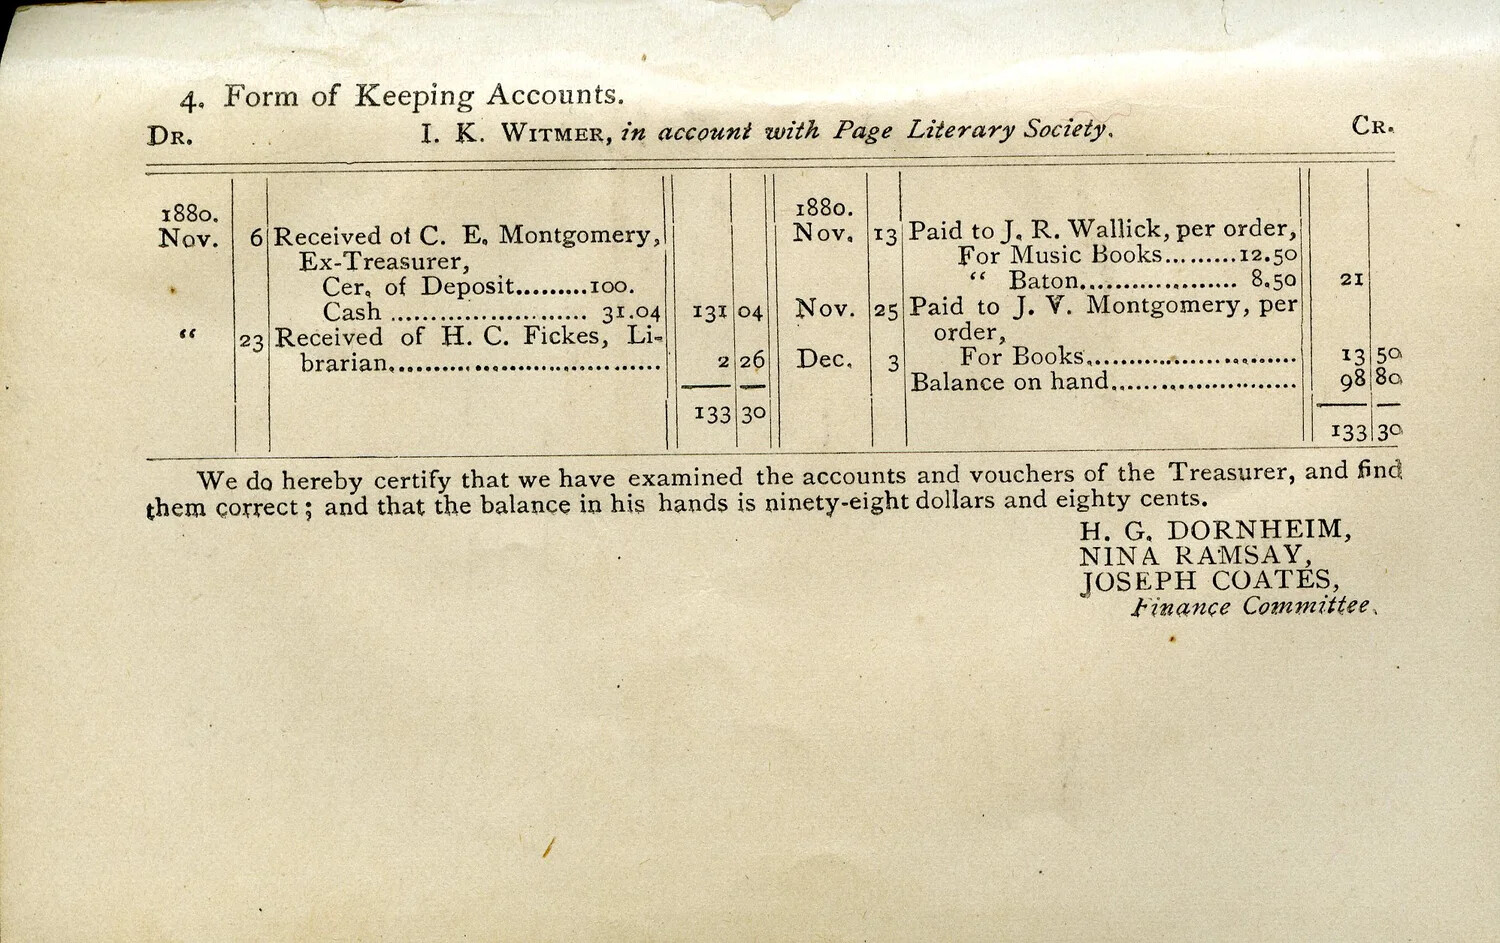 4. Form of Keeping Accounts.
DR. I. K. WITMER, in account with Page Literary Society. CR.
1880.
Nov. 6 Received of C. E. Montgomery,
Ex-Treasurer,
Cer. of Deposit.........100.
Cash ........................ 31.04 131 04
“ 23 Received of H. C. Fickes, Li-
brarian.................................. 2 26
133 30
1880.
Nov. 13 Paid to J. R. Wallick, per order,
For Music Books.........12.50
“ Baton.................... 8.50 21
Nov. 25 Paid to J. V. Montgomery, per
order,
Dec. 3 For Books.......................... 13 50
Balance on hand....................... 98 80
133 30
We do hereby certify that we have examined the accounts and vouchers of the Treasurer, and find
them correct; and that the balance in his hands is ninety-eight dollars and eighty cents.
H. G. DORNHEIM,
NINA RAMSAY,
JOSEPH COATES,
Finance Committee.